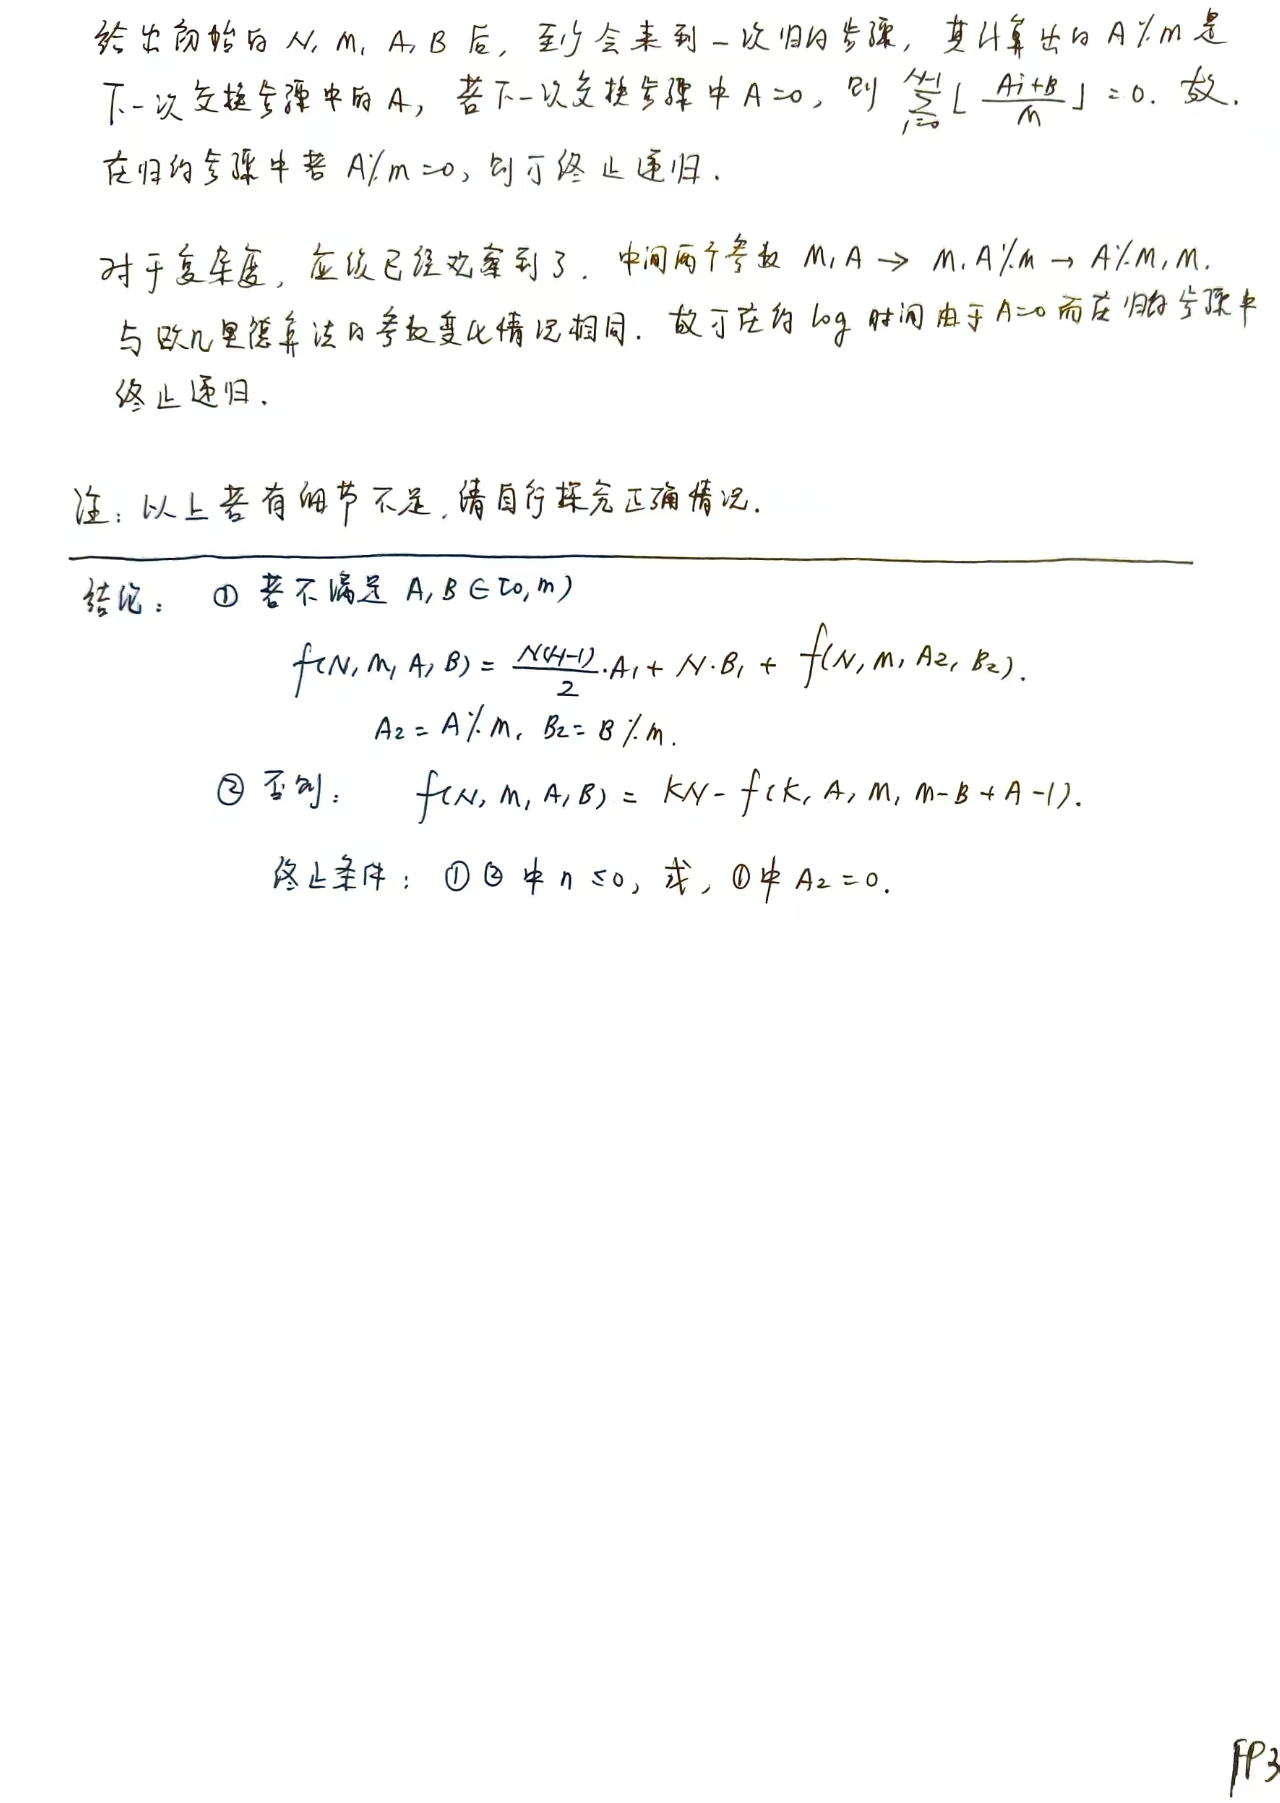 给出初始的 N, M, A, B 后, 至少会来到一次归约步骤, 其计算出的 A%m 是
下一次交换步骤中的 A, 若下一次交换步骤中 A=0, 则 \sum_{i=0}^{N-1} ⌊\frac{Ai+B}{M}⌋ = 0. 故.
在归约步骤中若 A%m=0, 则可终止递归.
对于复杂度, 应该已经观察到了. 中间两个参数 M, A → M, A%m → A%M, M.
与欧几里德算法的参数变化情况相同. 故可在约 log 时间由于 A=0 而在归约步骤中
终止递归.
注: 以上若有细节不足, 请自行探究正确情况.
结论: ① 若不满足 A, B ∈ [0, m)
f(N, M, A, B) = \frac{N(N-1)}{2}·A₁ + N·B₁ + f(N, M, A₂, B₂).
A₂ = A%M, B₂ = B%M.
② 否则: f(N, M, A, B) = KN - f(K, A, M, M-B+A-1).
终止条件: ①② 中 n ≤ 0, 或, ①中 A₂ = 0.
FP3